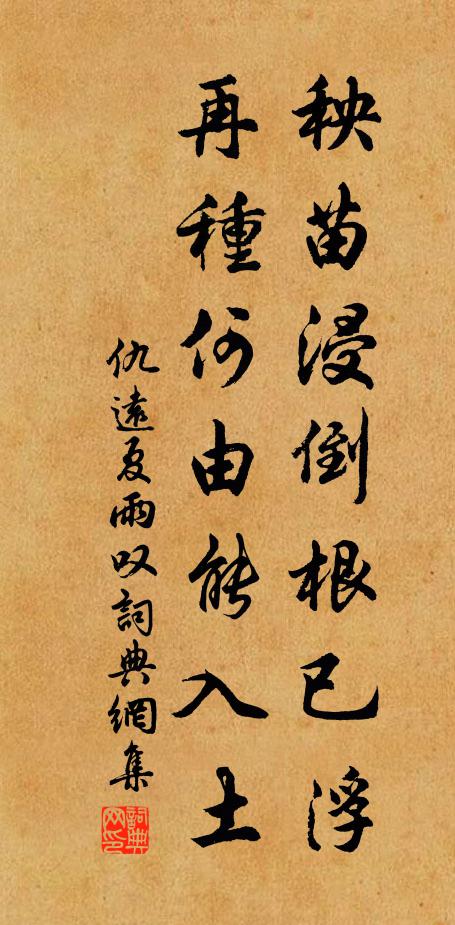 秧苗浸倒根已浮
再種何由能入土
仇遠夏雨叹詞典網集
詞典网印